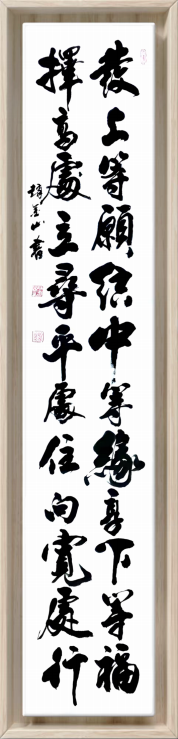 發上等願結中等緣享下等福
擇高處立尋平處住向寬處行